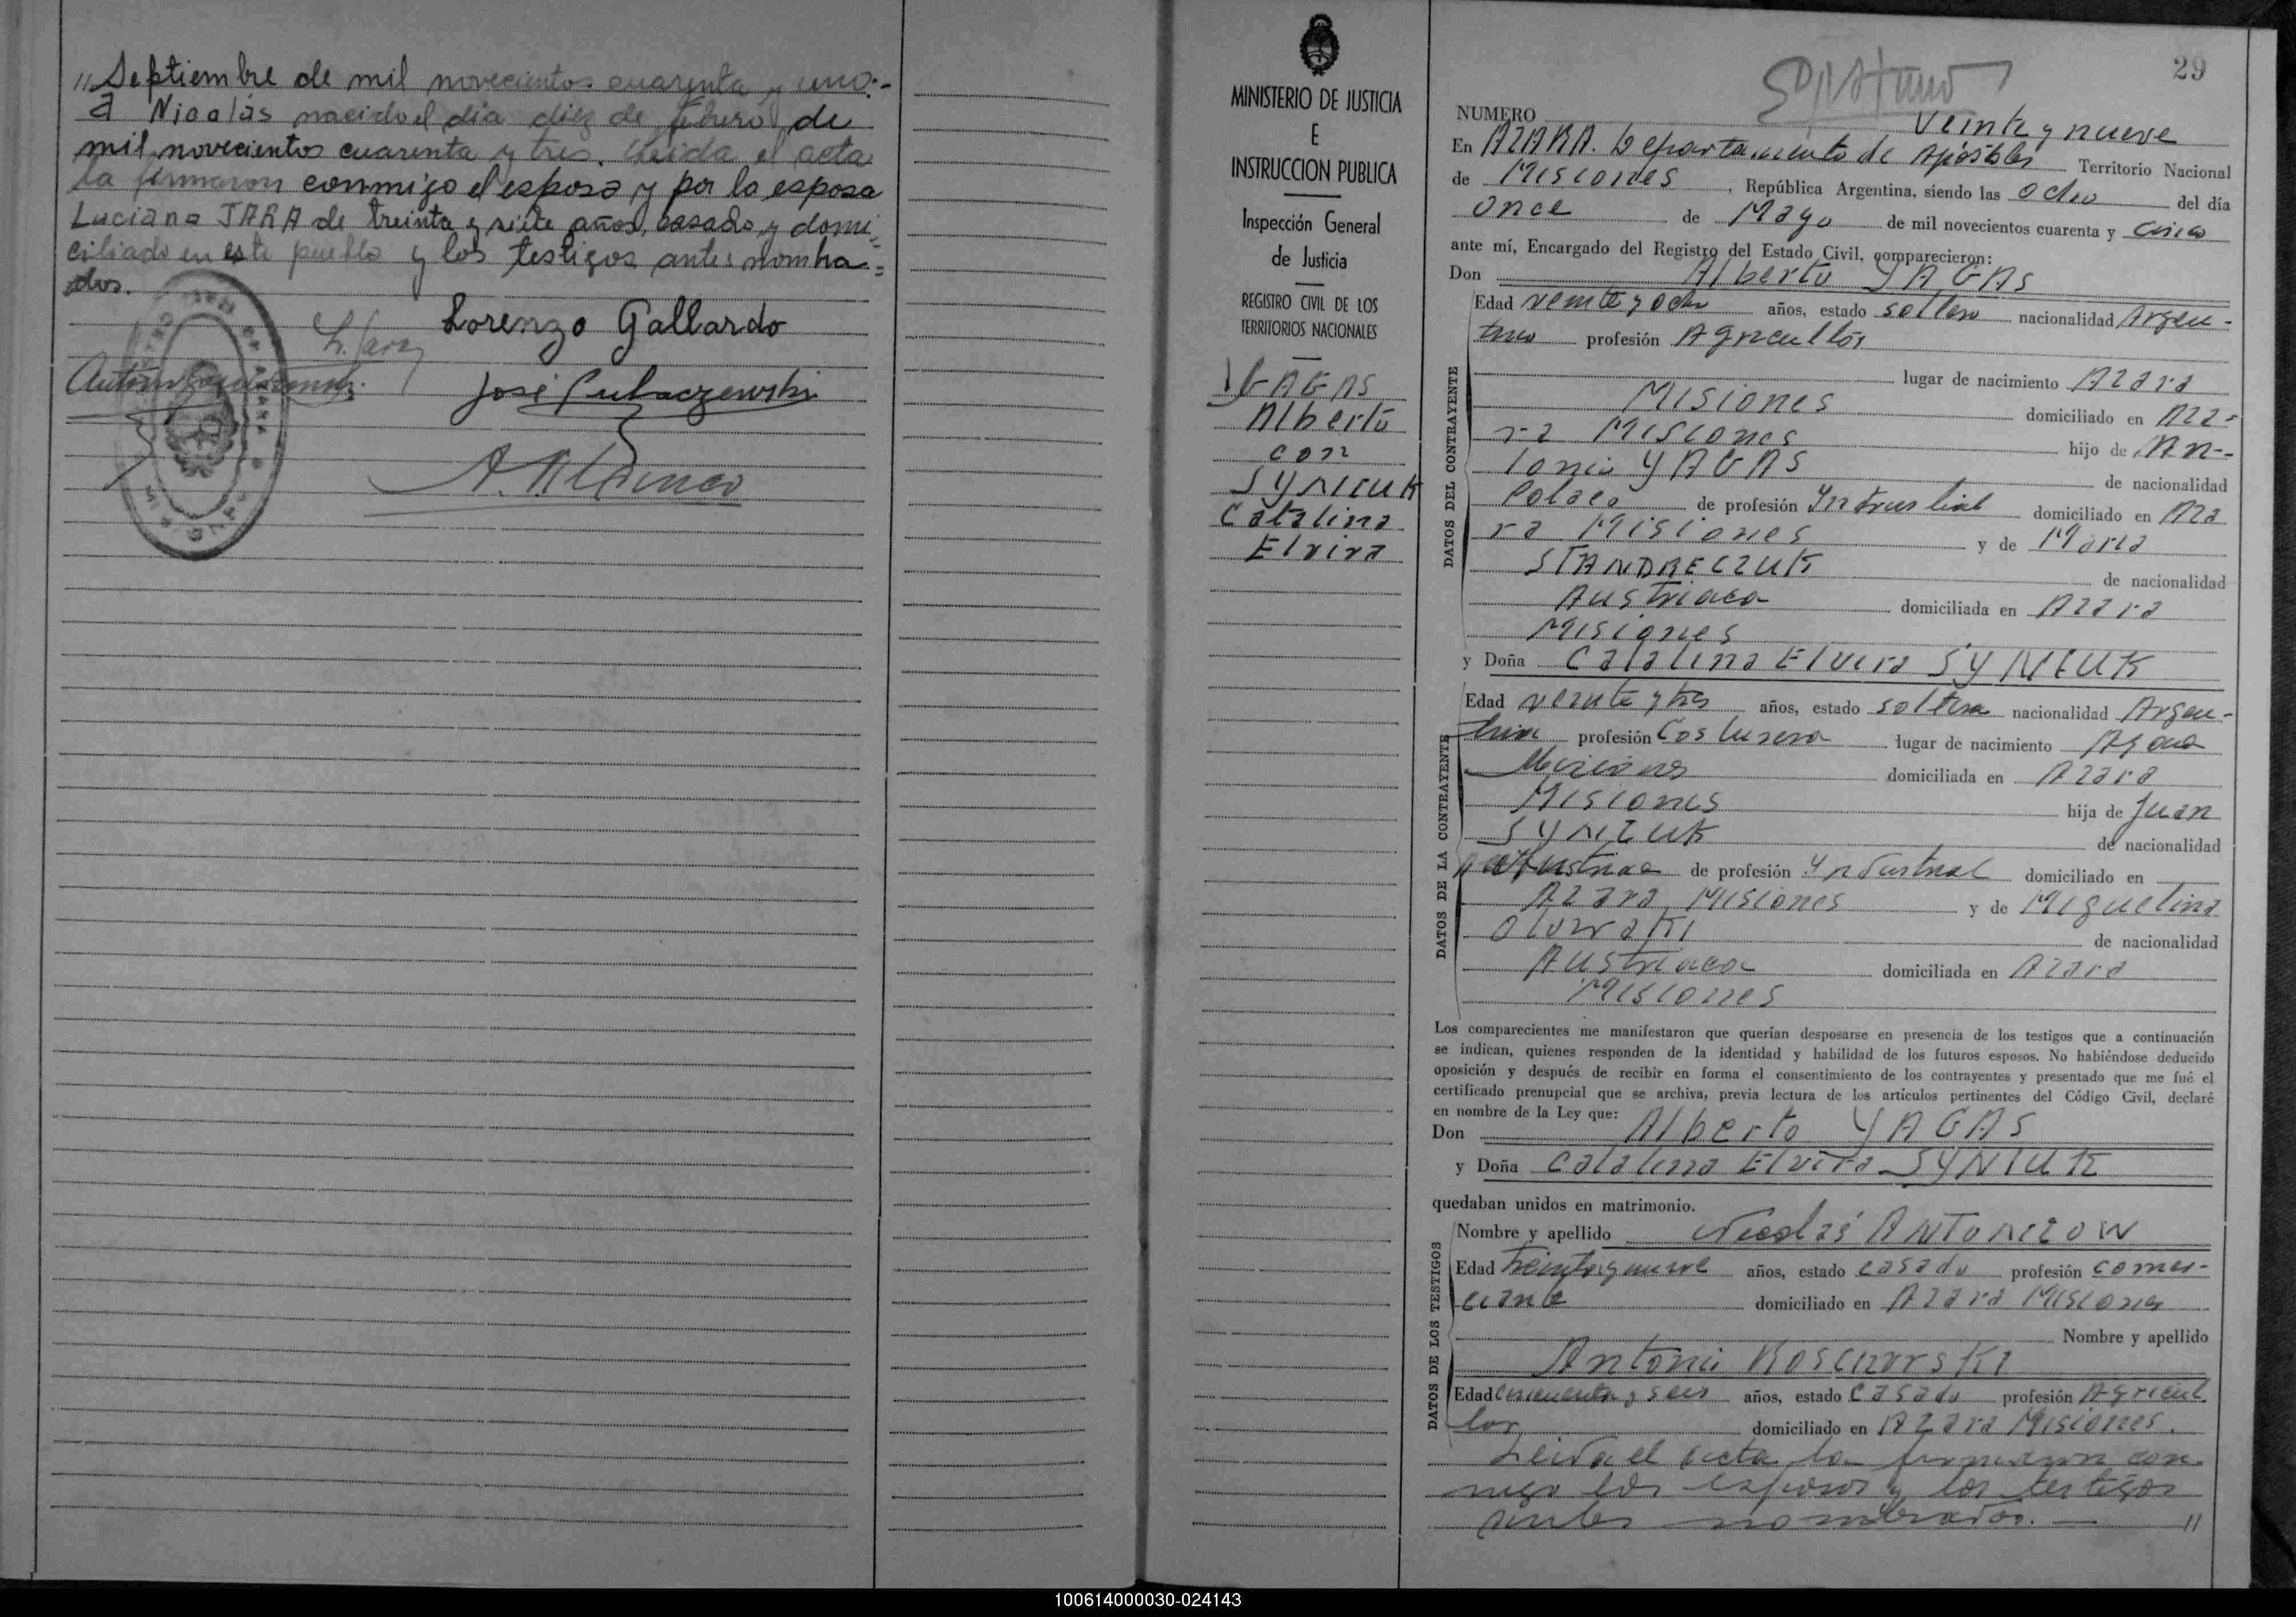 "Septiembre de mil novecientos cuarenta y uno.-
a Nicolás nacido el día diez de febrero de
mil novecientos cuarenta y tres. Leida el acta
la firmaron conmigo el esposo y por la esposa
Luciano JARA de treinta y siete años, casado y domi=
ciliado en este pueblo y los testigos antes nombra=
dos.
L. Jara
Lorenzo Gallardo
MINISTERIO DE JUSTICIA
E
INSTRUCCION PUBLICA
Inspección General
de Justicia
REGISTRO CIVIL DE LOS
TERRITORIOS NACIONALES
YAGAS
Alberto
con
SYNIUK
Catalina
Elvira
29
NUMERO Veinte y nueve
En AZARA. Departamento de Apóstoles Territorio Nacional
de Misiones, República Argentina, siendo las ocho del día
once de Mayo de mil novecientos cuarenta y cinco
ante mí, Encargado del Registro del Estado Civil, comparecieron:
Don Alberto YAGAS
DATOS DEL CONTRAYENTE
Edad veinte y ocho años, estado soltero nacionalidad Argen-
tino profesión Agricultor
lugar de nacimiento Azara
Misiones domiciliado en Aza=
ra Misiones hijo de An-
tonio YAGAS de nacionalidad
Polaca de profesión Yndustrial domiciliado en Aza
ra Misiones y de María
STANDRECZUK de nacionalidad
Austriaca domiciliada en Azara
Misiones
y Doña Catalina Elvira SYNIUK
DATOS DE LA CONTRAYENTE
Edad veinte y tres años, estado soltera nacionalidad Argen-
tina profesión Costurera lugar de nacimiento Azara
Misiones domiciliada en Azara
Misiones hija de Juan
SYNIUK de nacionalidad
Austriaca de profesión Yndustrial domiciliado en
Azara Misiones y de Miguelina
de nacionalidad
Austriaca domiciliada en Azara
Misiones
Los comparecientes me manifestaron que querían desposarse en presencia de los testigos que a continuación
se indican, quienes responden de la identidad y habilidad de los futuros esposos. No habiéndose deducido
oposición y después de recibir en forma el consentimiento de los contrayentes y presentado que me fué el
certificado prenupcial que se archiva, previa lectura de los artículos pertinentes del Código Civil, declaré
en nombre de la Ley que:
Don Alberto YAGAS
y Doña Catalina Elvira SYNIUK
quedaban unidos en matrimonio.
DATOS DE LOS TESTIGOS
Nombre y apellido Nicolás ANTONIOW
Edad treinta y nueve años, estado casado profesión comer-
ciante domiciliado en Azara Misiones
Nombre y apellido
Antonio
Edad cincuenta y seis años, estado casado profesión Agricul
tor domiciliado en Azara Misiones.
Leida el acta la firmaron con-
migo los esposos y los testigos
antes nombrados. — "
100614000030-024143